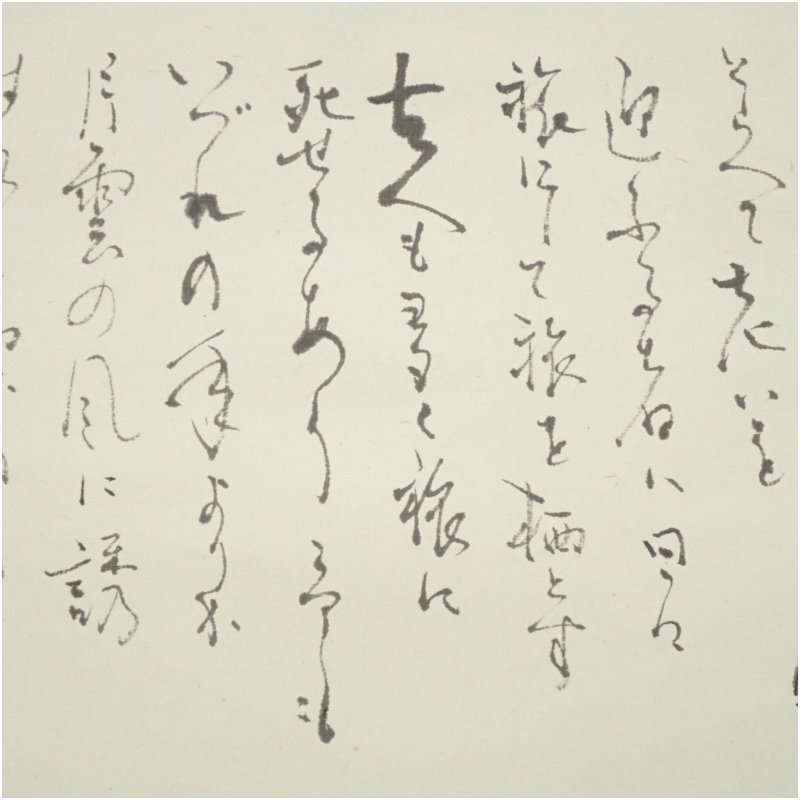 とらへて老いを
迎ふる者は日々
旅にして旅を栖とす
古人も多く旅に
死せるあり予も
いづれの年よりか
片雲の風に誘